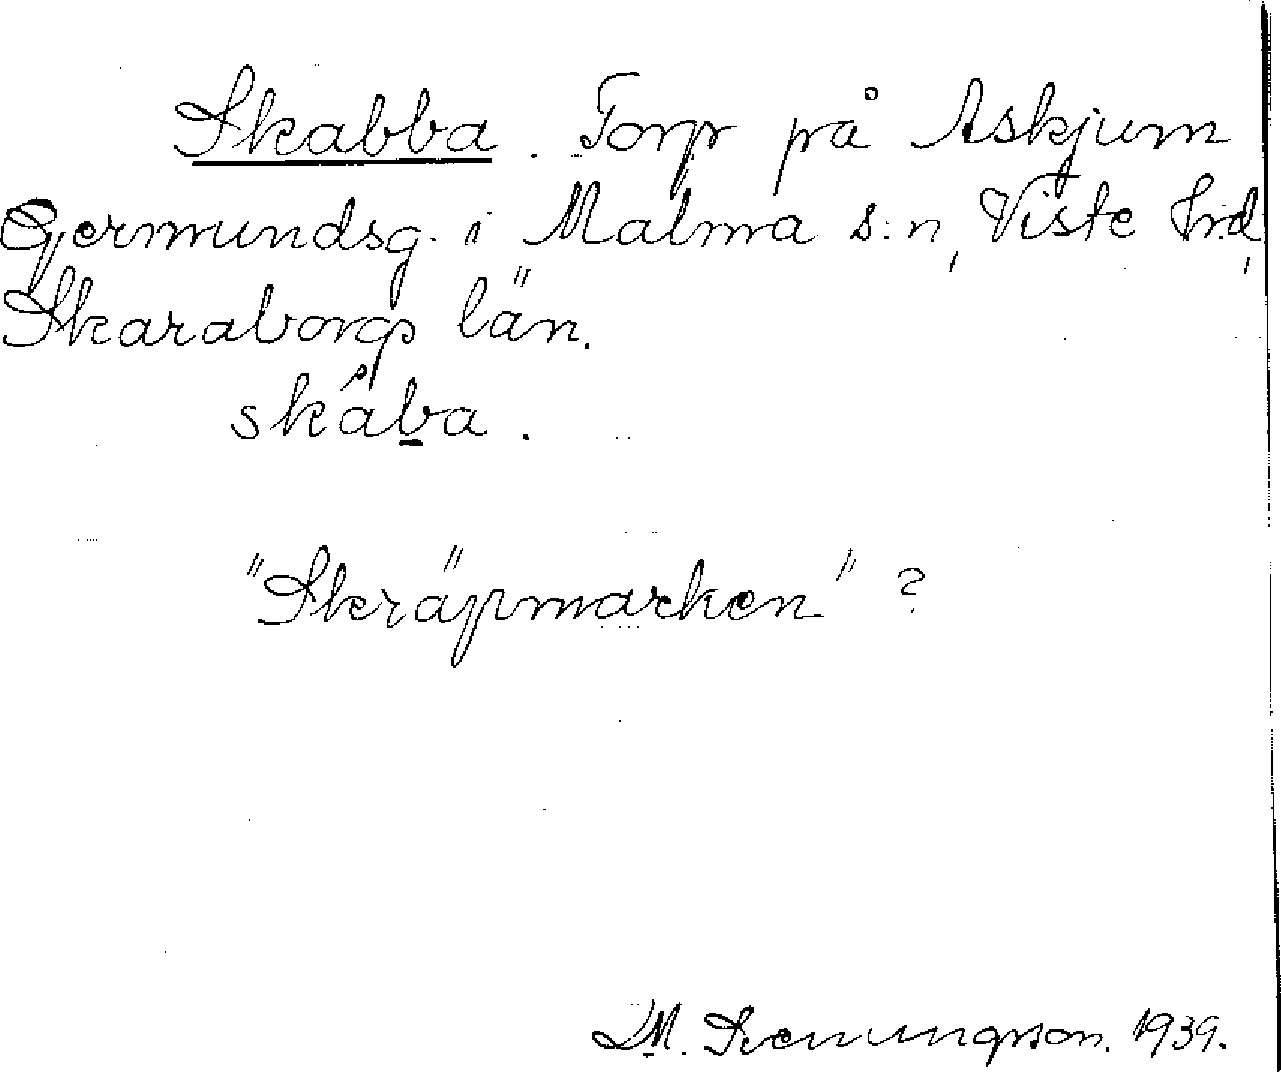 Skabba. Torp på Askjum
Germundsg. i Malma s:n, Viste hd,
Skaraborgs län.
skába.
"Skräpmarken" ?
M. Svenungsson. 1939.